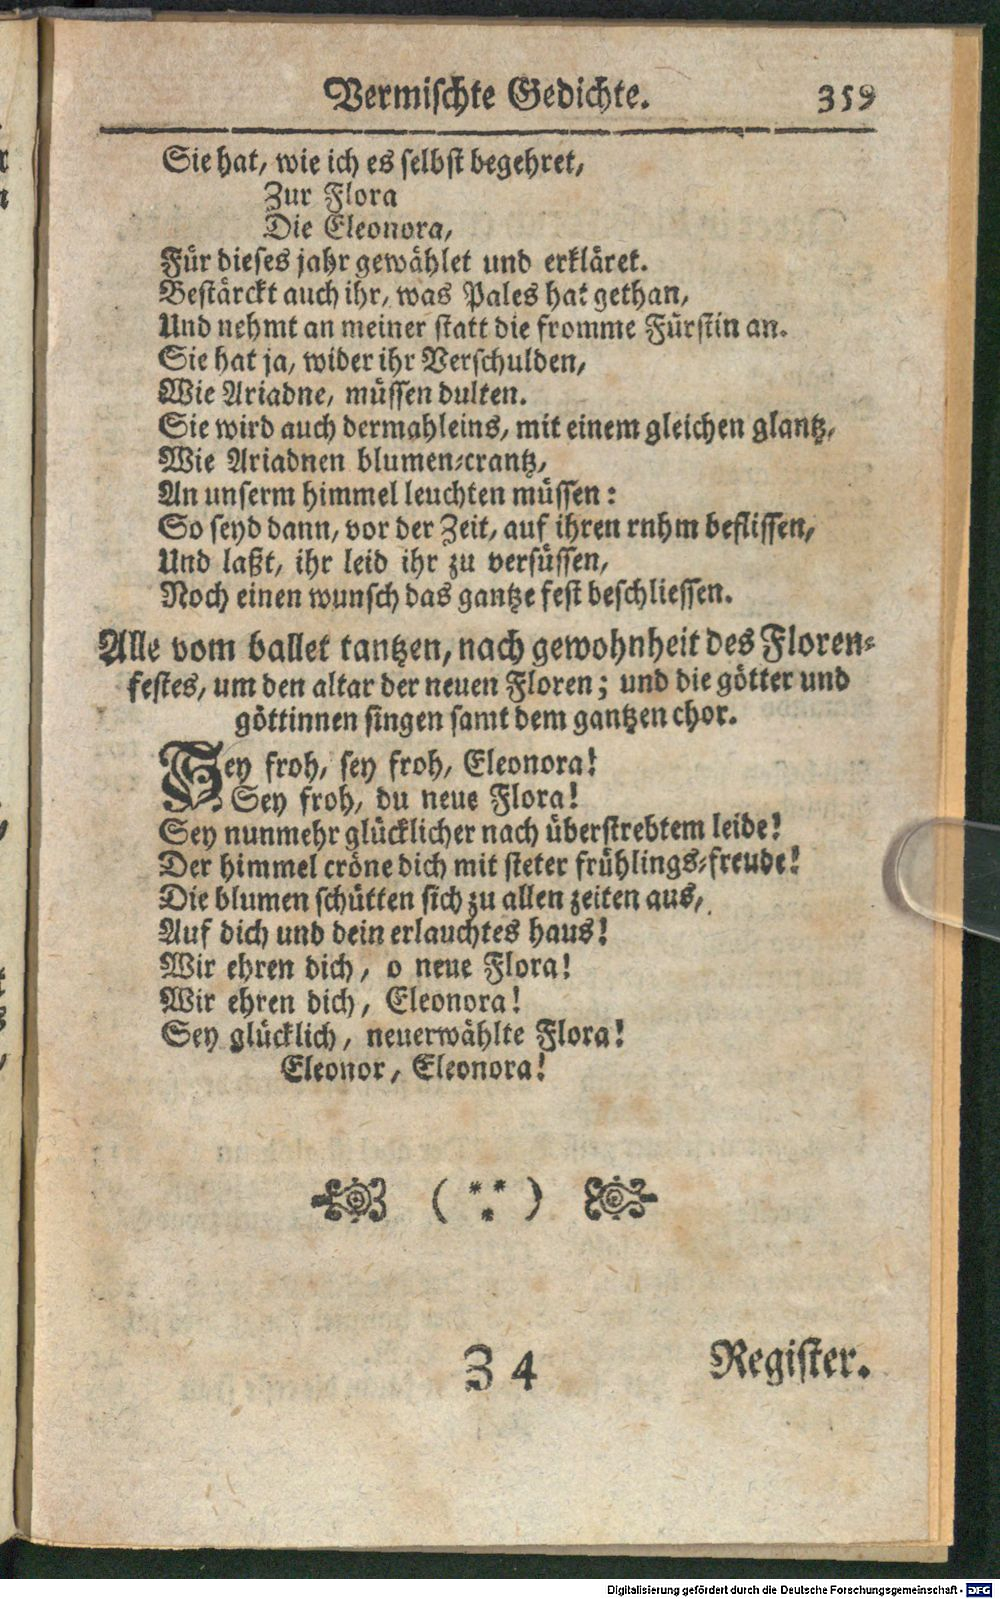 Vermischte Gedichte. 359
Sie hat, wie ich es selbst begehret,
Zur Flora
Die Eleonora,
Für dieses jahr gewählet und erkläret.
Bestärckt auch ihr, was Pales hat gethan,
Und nehmt an meiner statt die fromme Fürstin an.
Sie hat ja, wider ihr Verschulden,
Wie Ariadne, müssen dulten.
Sie wird auch dermahleins, mit einem gleichen glantz,
Wie Ariadnen blumen-crantz,
An unserm himmel leuchten müssen:
So seyd dann, vor der Zeit, auf ihren rnhm beflissen,
Und laßt, ihr leid ihr zu versüssen,
Noch einen wunsch das gantze fest beschliessen.
Alle vom ballet tantzen, nach gewohnheit des Floren-
festes, um den altar der neuen Floren; und die götter und
göttinnen singen samt dem gantzen chor.
Sey froh, sey froh, Eleonora!
Sey froh, du neue Flora!
Sey nunmehr glücklicher nach überstrebtem leide!
Der himmel cröne dich mit steter frühlings-freude!
Die blumen schütten sich zu allen zeiten aus,
Auf dich und dein erlauchtes haus!
Wir ehren dich, o neue Flora!
Wir ehren dich, Eleonora!
Sey glücklich, neuerwählte Flora!
Eleonor, Eleonora!
( *** )
Z 4 Register.
Digitalisierung gefördert durch die Deutsche Forschungsgemeinschaft - DFG